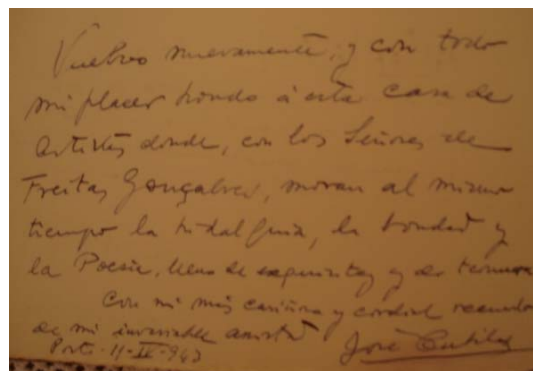 Vuelvo nuevamente, y con todo
mi placer hondo á esta casa de
artistas donde, con los Señores de
Freitas Gonçalves, moran al mismo
tiempo la hidalguia, la bondad y
la Poesia, llena de exquisitez y de ternura
Con mi más cariñoso y cordial recuerdo
de mi invariable amistad
Porto-11-IX-943
José